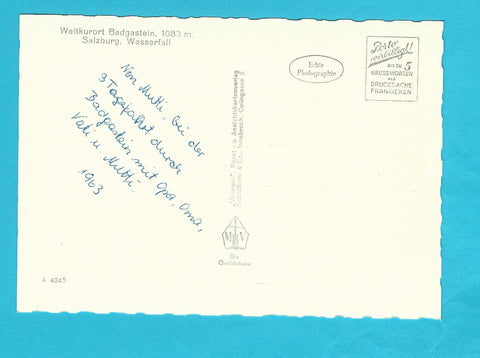 Weltkurort Badgastein, 1083 m.
Salzburg. Wasserfall
Echte
Photographie
Porto
verbilligt!!
BIS ZU 5
GRUSSWORTEN
ALS
DRUCKSACHE
FRANKIEREN
Von Mutti, bei der
3 Tagefahrt durch
Badgastein mit Opa, Oma,
Vati u. Mutti.
1963
Kunst- u. Ansichtskartenverlag
& Co., Innsbruck,
M V
Die
A 4245